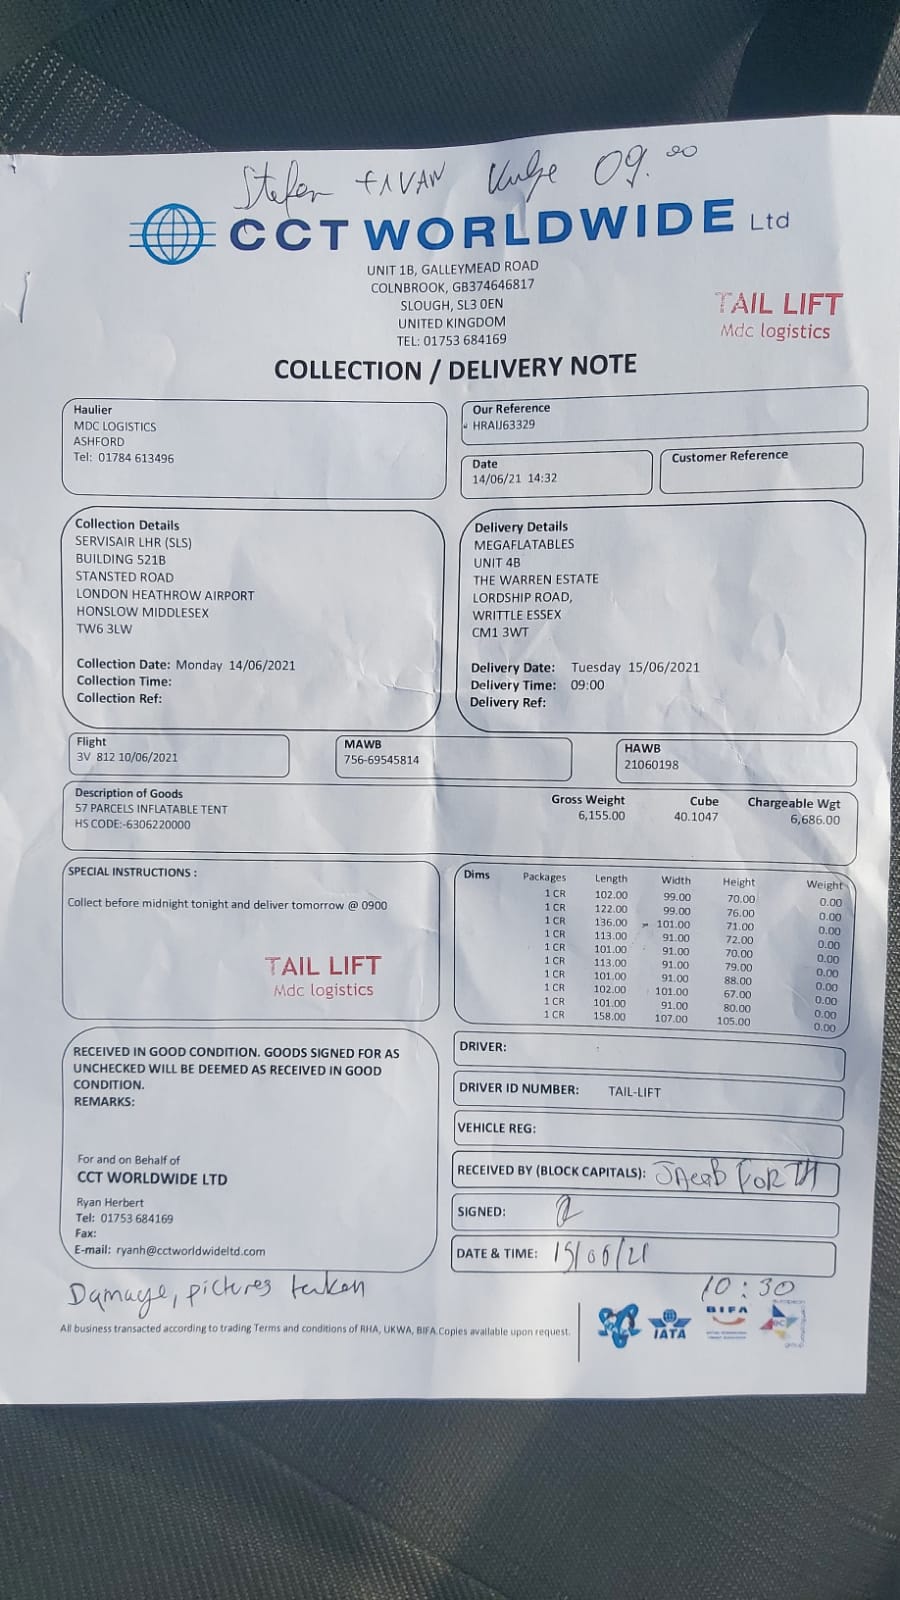 Stefan + IVAN 09.00
CCT WORLDWIDE Ltd
UNIT 1B, GALLEYMEAD ROAD
COLNBROOK, GB374646817
SLOUGH, SL3 0EN
UNITED KINGDOM
TEL: 01753 684169
TAIL LIFT
Mdc logistics
COLLECTION / DELIVERY NOTE
Haulier
MDC LOGISTICS
ASHFORD
Tel: 01784 613496
Our Reference
HRAIJ63329
Date
14/06/21 14:32
Customer Reference
Collection Details
SERVISAIR LHR (SLS)
BUILDING 521B
STANSTED ROAD
LONDON HEATHROW AIRPORT
HONSLOW MIDDLESEX
TW6 3LW
Collection Date: Monday 14/06/2021
Collection Time:
Collection Ref:
Delivery Details
MEGAFLATABLES
UNIT 4B
THE WARREN ESTATE
LORDSHIP ROAD,
WRITTLE ESSEX
CM1 3WT
Delivery Date: Tuesday 15/06/2021
Delivery Time: 09:00
Delivery Ref:
Flight
3V 812 10/06/2021
MAWB
756-69545814
HAWB
21060198
Description of Goods
57 PARCELS INFLATABLE TENT
HS CODE:-6306220000
Gross Weight Cube Chargeable Wgt
6,155.00 40.1047 6,686.00
SPECIAL INSTRUCTIONS :
Collect before midnight tonight and deliver tomorrow @ 0900
TAIL LIFT
Mdc logistics
Dims Packages Length Width Height Weight
1 CR 102.00 99.00 70.00 0.00
1 CR 122.00 99.00 76.00 0.00
1 CR 136.00 101.00 71.00 0.00
1 CR 113.00 91.00 72.00 0.00
1 CR 101.00 91.00 70.00 0.00
1 CR 113.00 91.00 79.00 0.00
1 CR 101.00 91.00 88.00 0.00
1 CR 102.00 101.00 67.00 0.00
1 CR 101.00 91.00 80.00 0.00
1 CR 158.00 107.00 105.00 0.00
RECEIVED IN GOOD CONDITION. GOODS SIGNED FOR AS
UNCHECKED WILL BE DEEMED AS RECEIVED IN GOOD
CONDITION.
REMARKS:
For and on Behalf of
CCT WORLDWIDE LTD
Ryan Herbert
Tel: 01753 684169
Fax:
E-mail: ryanh@cctworldwideltd.com
DRIVER:
DRIVER ID NUMBER: TAIL-LIFT
VEHICLE REG:
RECEIVED BY (BLOCK CAPITALS): JACOB FORTH
SIGNED:
DATE & TIME: 15/06/21
10:30
Damage, pictures taken
All business transacted according to trading Terms and conditions of RHA, UKWA, BIFA.Copies available upon request.
IATA
BIFA